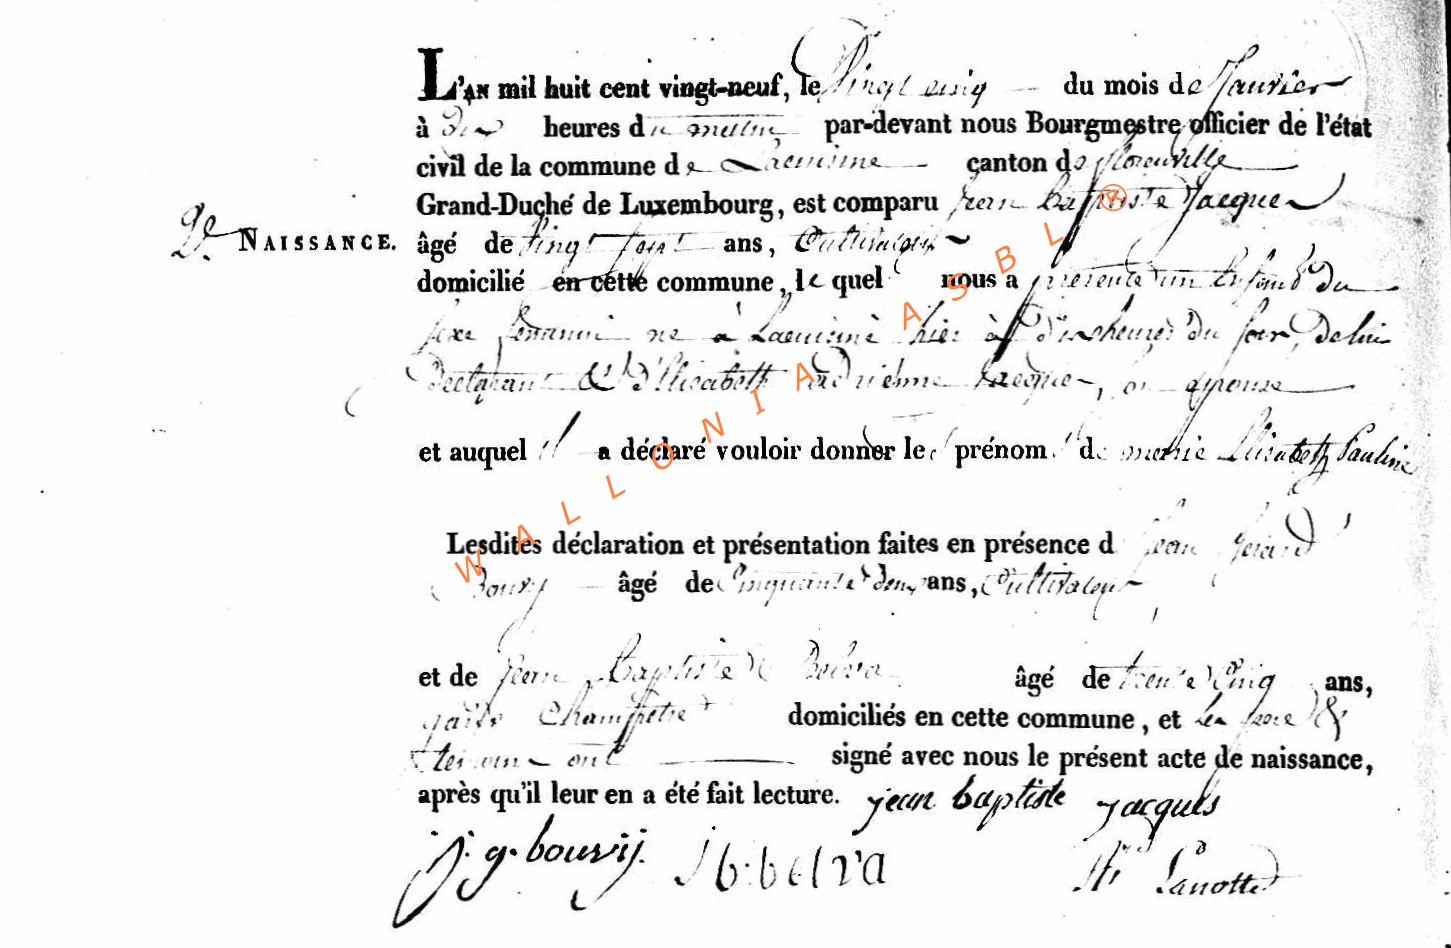 L'AN mil huit cent vingt-neuf, le Vingt cinq du mois de Janvier
à Dix heures du matin par-devant nous Bourgmestre officier de l'état
civil de la commune de Lacuisine canton de florenville
Grand-Duché de Luxembourg, est comparu jean Baptiste Jacques
2e. NAISSANCE. âgé de Vingt Sept ans, Cultivateur
domicilié en cette commune, le quel nous a présenté un Enfant du
sexe feminin né a Lacuisine hier à dix heures du soir, de lui
Declarant & d'Elisabeth Jacques, son epouse
et auquel il a déclaré vouloir donner les prénoms de marie Elisabeth Pauline
Lesdites déclaration et présentation faites en présence d jean Gerard
Bourij âgé de Cinquante deux ans, Cultivateur
et de jean Baptiste Belva âgé de trente Cinq ans,
garde Champetre domiciliés en cette commune, et les pere &
temoins ont signé avec nous le présent acte de naissance,
après qu'il leur en a été fait lecture. jean baptiste jacques
j. g. bourij. J b. belva Lanotte
WALLONIA ASBL ®